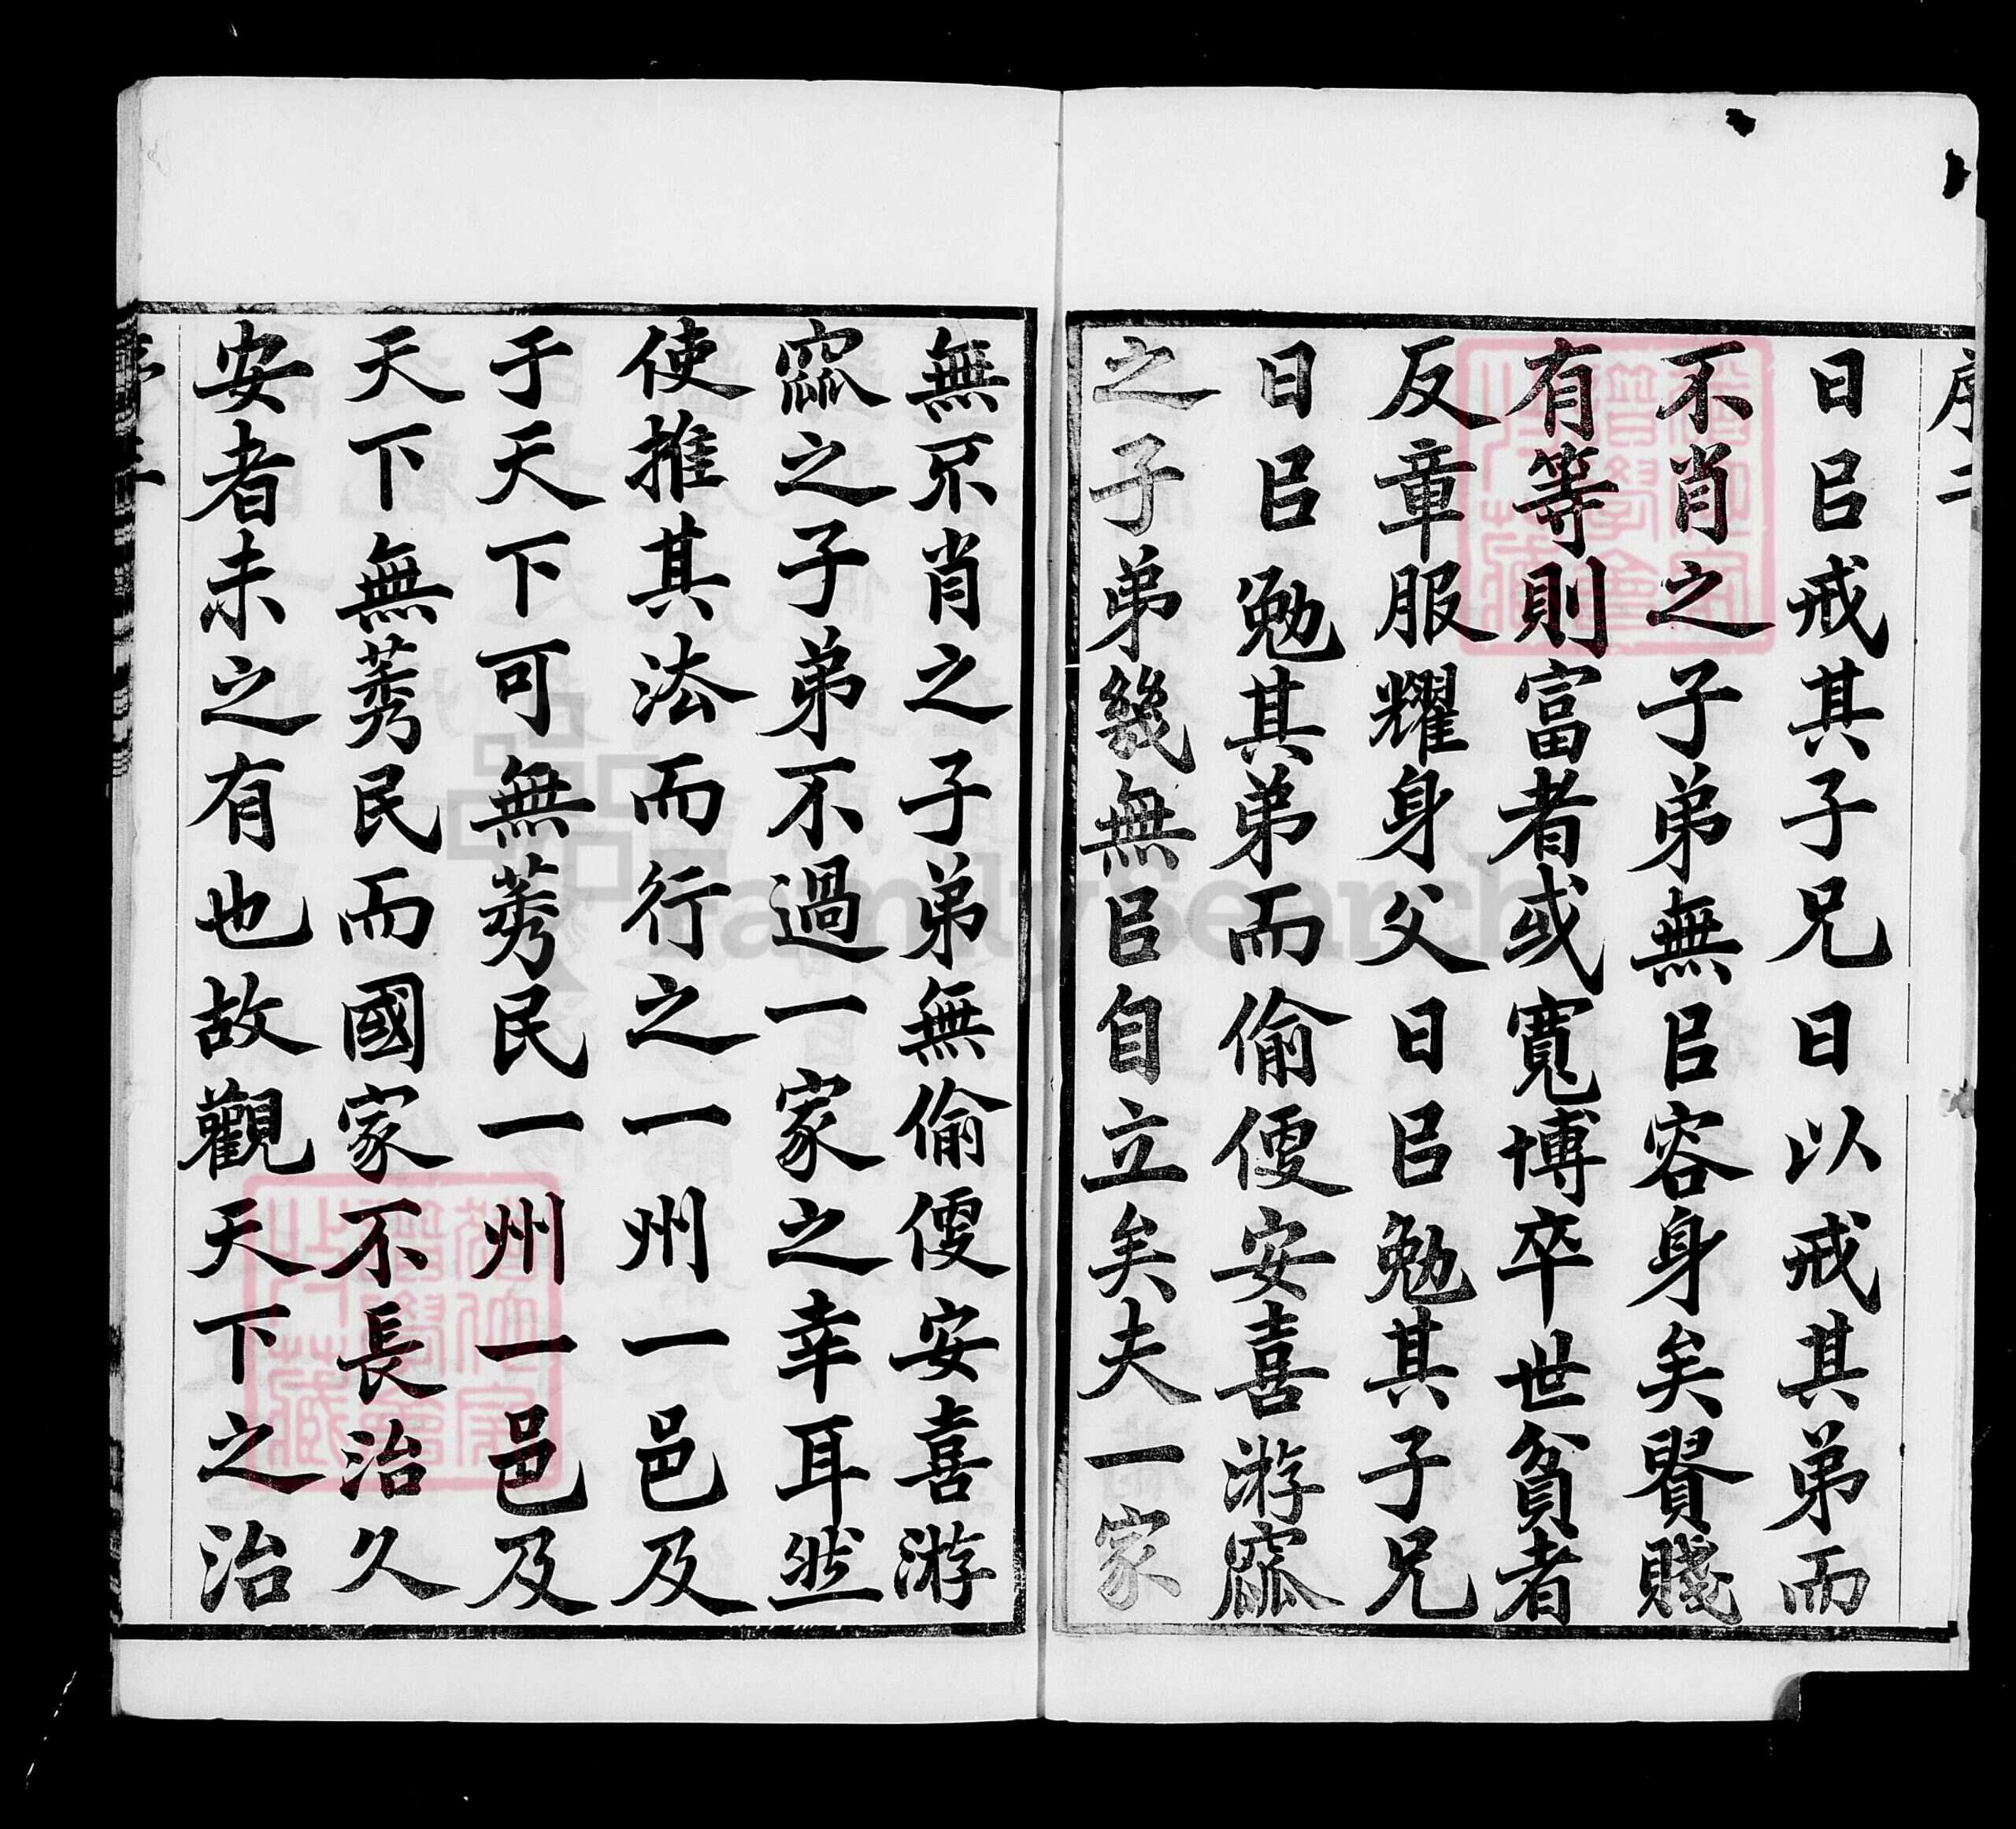 序二
日㠯戒其子兄日以戒其弟而
不肖之子弟無㠯容身矣貴賤
有等則富者或寬博卒世貧者
反章服耀身父日㠯勉其子兄
日㠯勉其弟而偷僾安喜游窳
之子弟幾無㠯自立矣夫一家
無不肖之子弟無偷僾安喜游
窳之子弟不過一家之幸耳然
使推其法而行之一州一邑及
于天下可無莠民一州一邑及
天下無莠民而國家不長治久
安者未之有也故觀天下之治
序三
FamilySearch